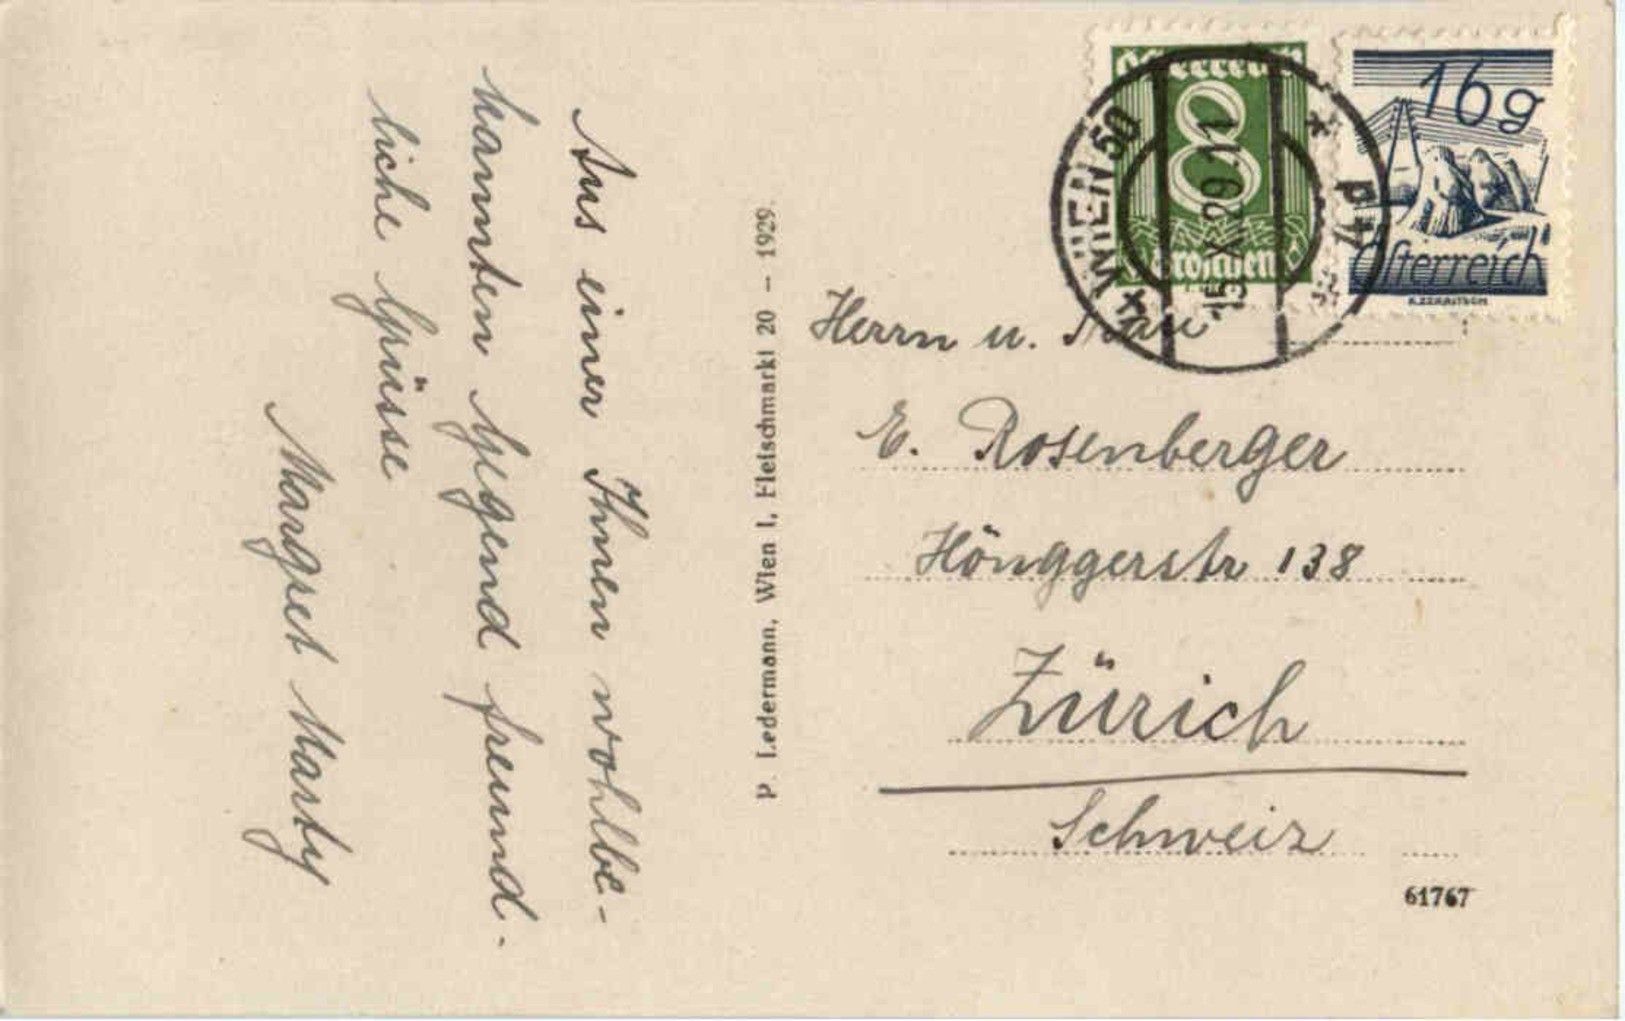 Aus einer Ihnen wohlbe-
kannten Gegend freund-
liche Grüsse
Margret Marty
P. Ledermann, Wien I, Fleischmarkt 20 – 1929.
Österreich
8
Groschen
16g
Österreich
WIEN 50
15.X.29.11
*
Herrn u. Frau
E. Rosenberger
Hönggerstr 138
Zürich
Schweiz
61767